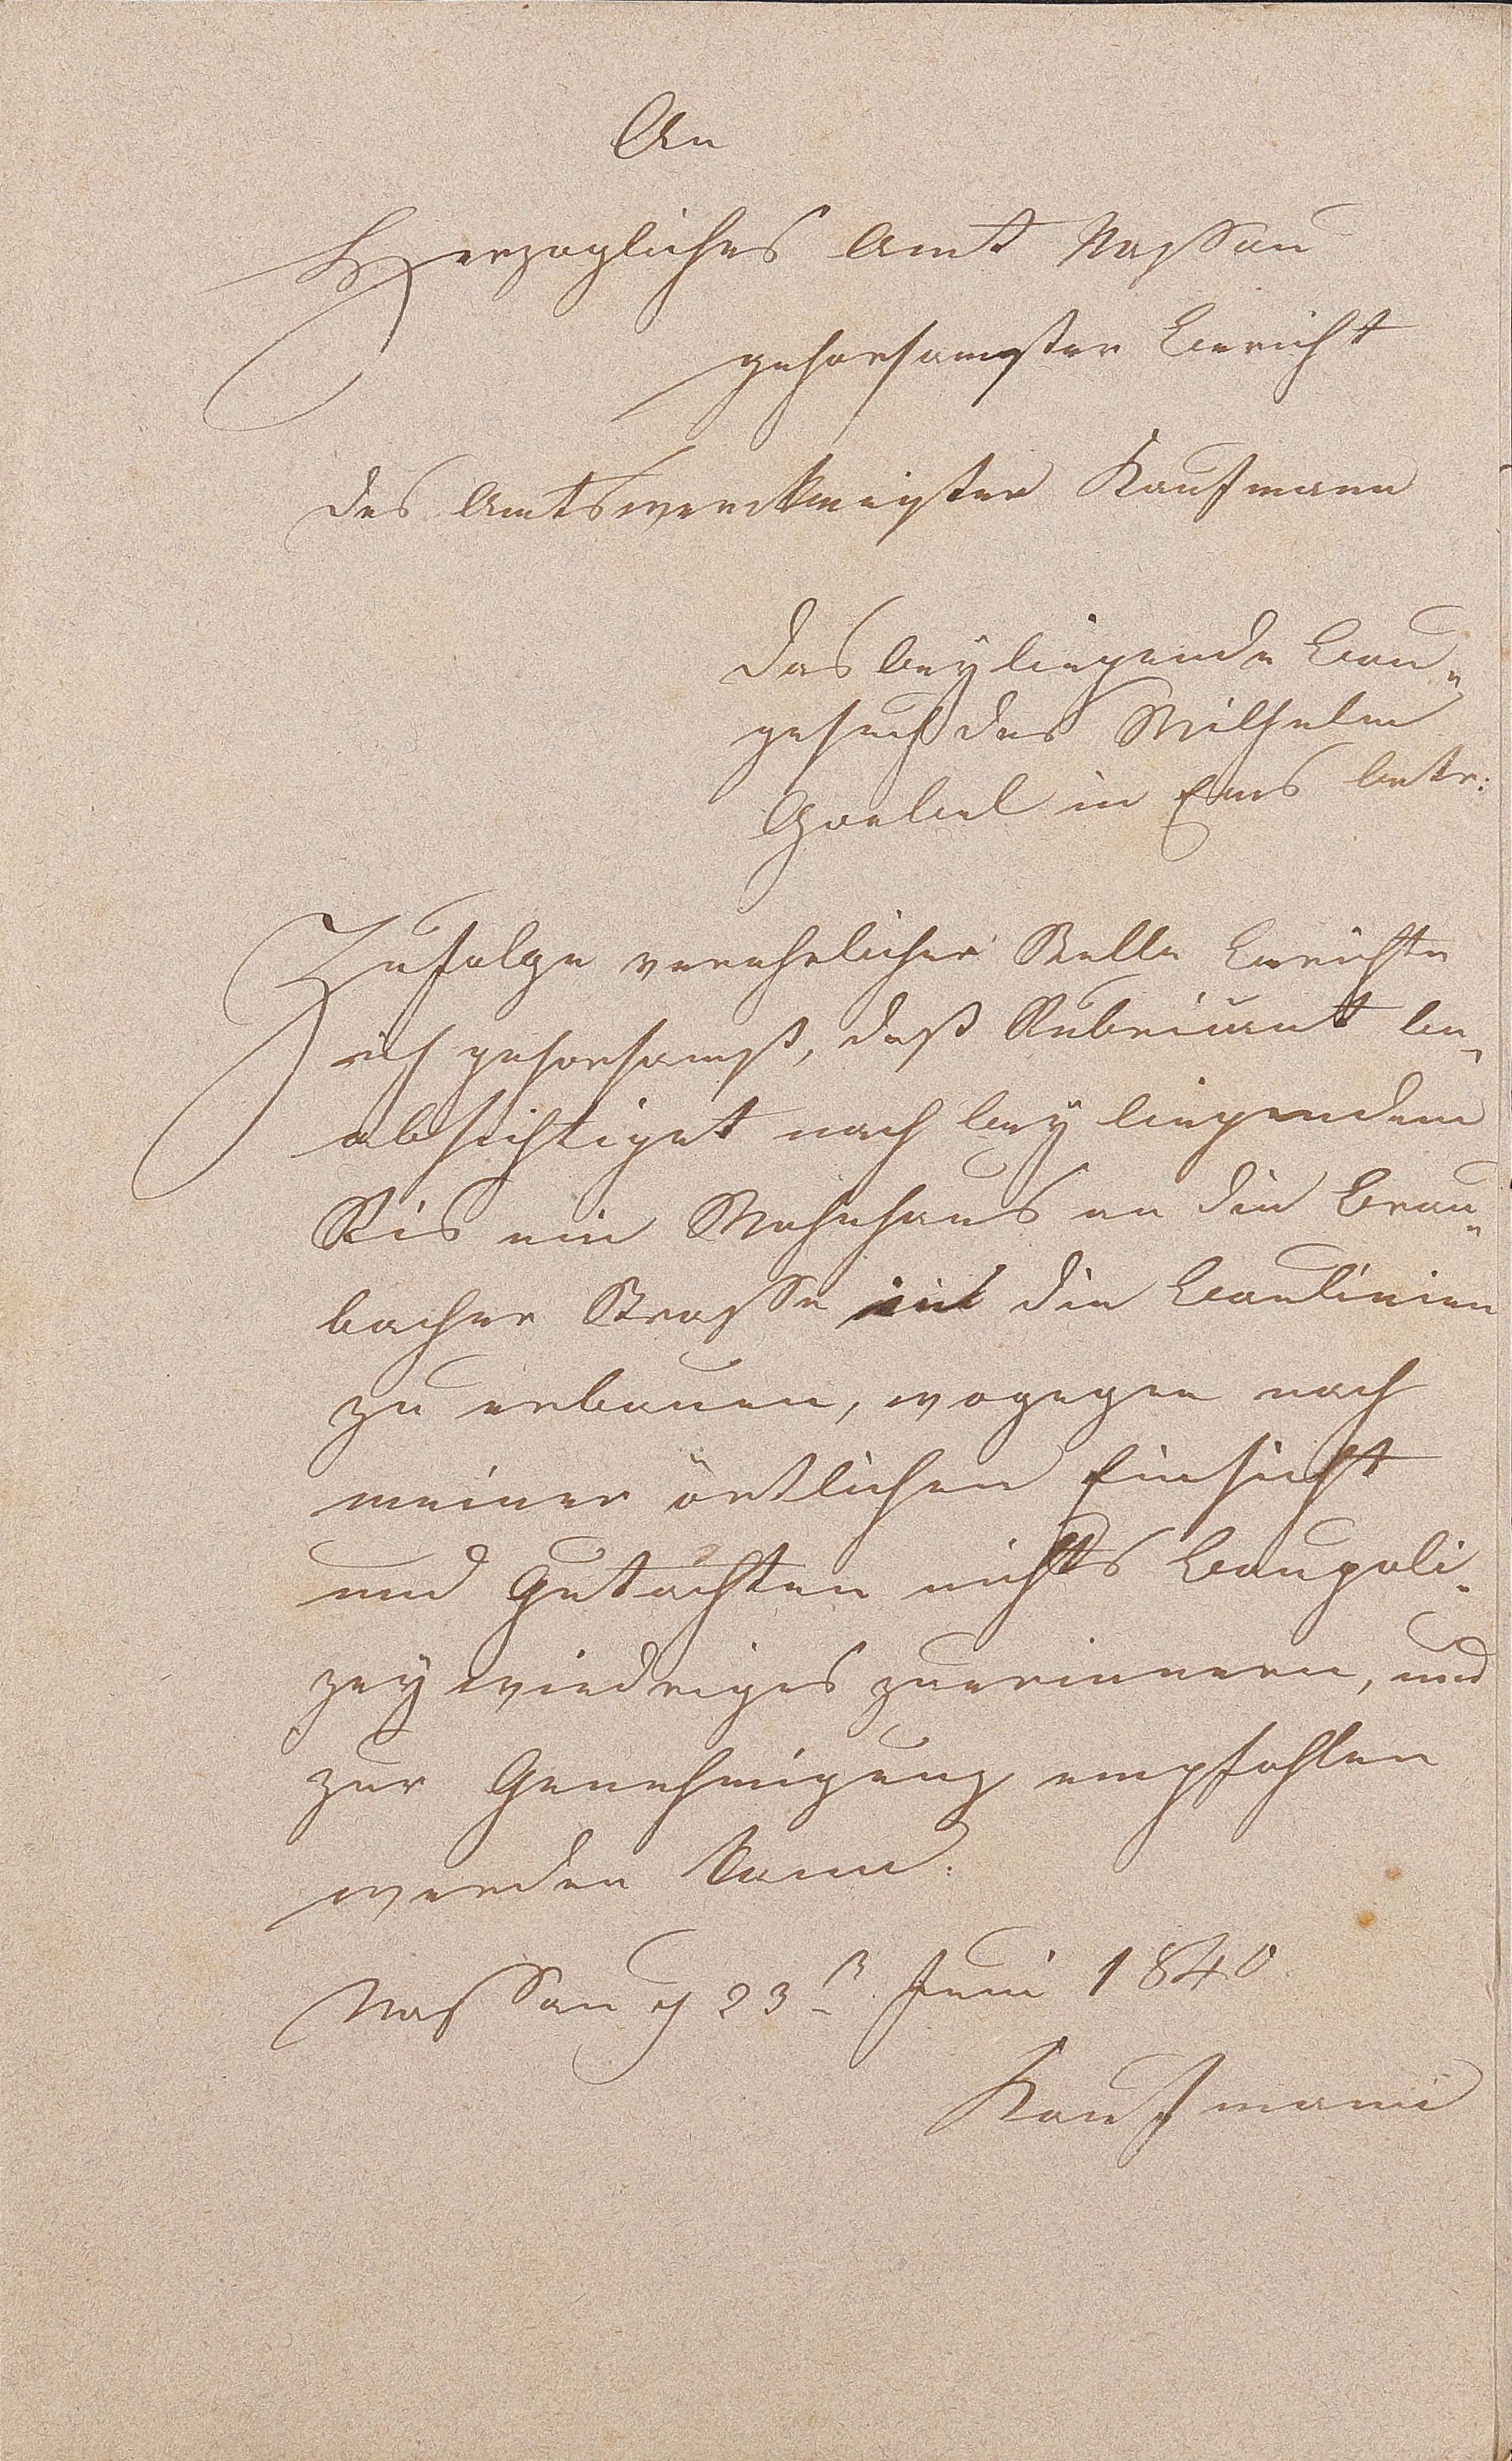 An
Herzogliches Amt Nassau
gehorsamster Bericht
des Amtswerckmeister Kaufmann
das beyliegende Bau„
gesuch des Wilhelm
Goebel in Ems betr:
Zufolge verehrlicher Stelle berichte
ich gehorsamst, daß Rubricant be„
absichtiget nach bey liegendem
Ris ein Wohnhaus an die Brau„
bacher Strasse in die Baulinien
zu erbauen, wogegen nach
meiner örtlichen Einsicht
und Gutachten nichts baupoli„
zey wiedriges zuerinnern, und
zur Genehmigung empfohlen
werden kann.
Nassau d 23ⁿ Juni 1840
Kaufmann